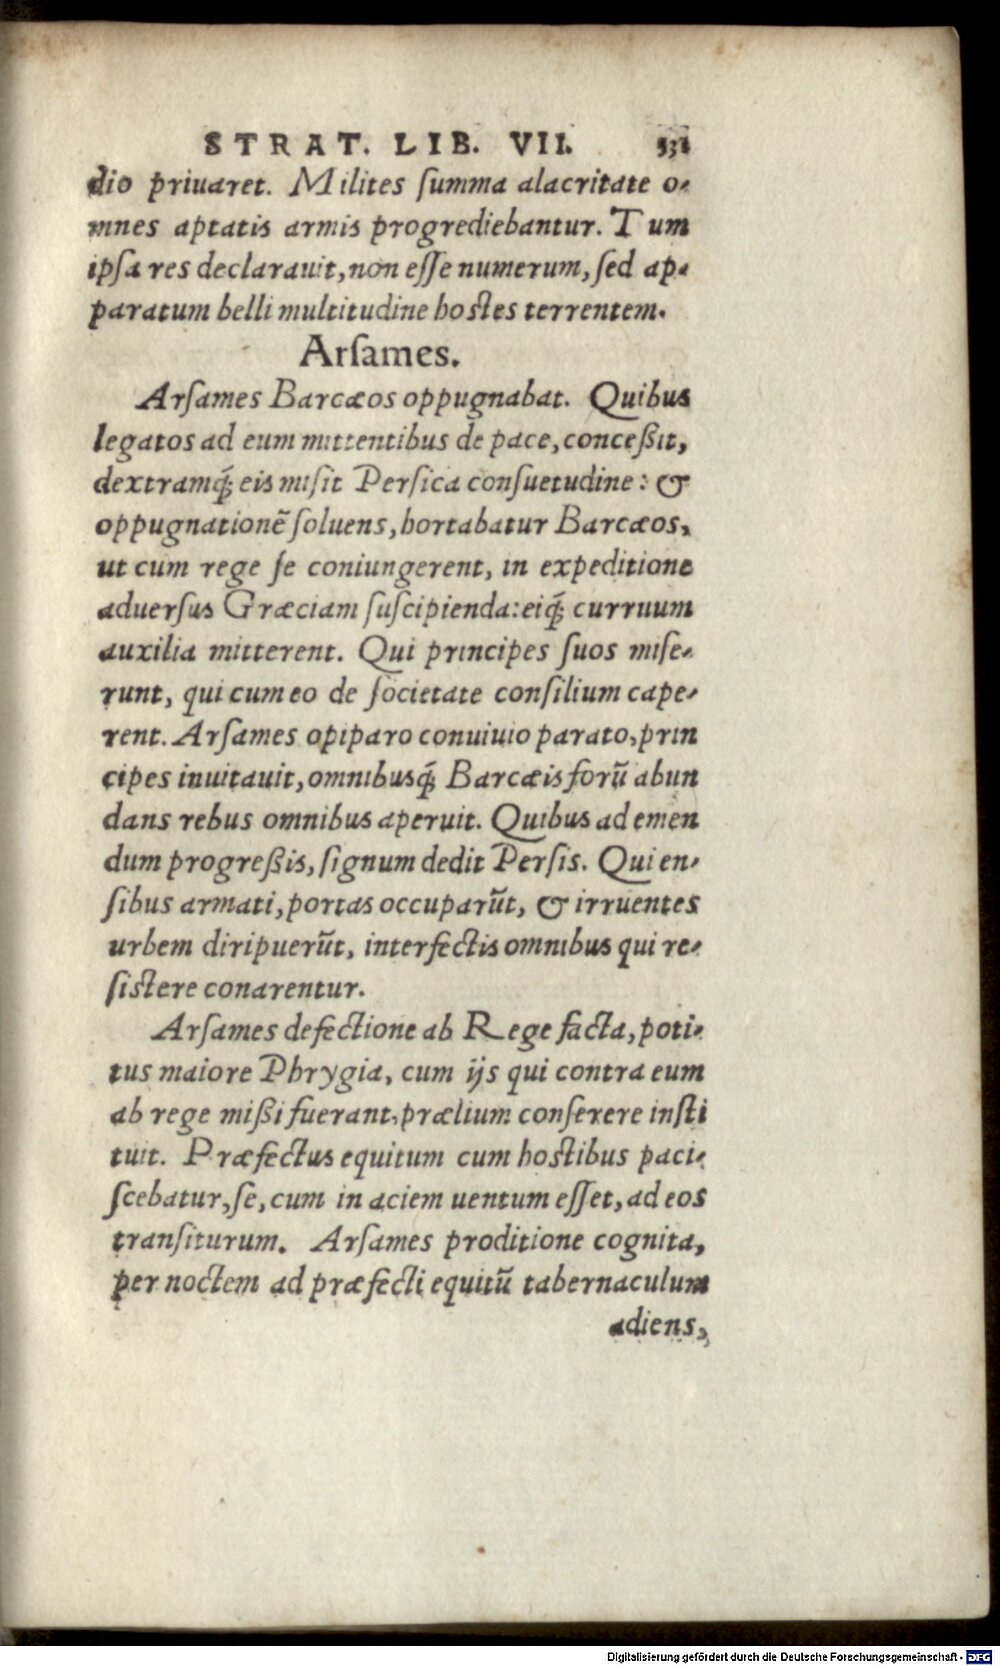 STRAT. LIB. VII. 331
dio priuaret. Milites summa alacritate o-
mnes aptatis armis progrediebantur. Tum
ipsa res declarauit, non esse numerum, sed ap-
paratum belli multitudine hostes terrentem.
Arsames.
Arsames Barcæos oppugnabat. Quibus
legatos ad eum mittentibus de pace, conceßit,
dextramq́; eis misit Persica consuetudine: &
oppugnationẽ soluens, hortabatur Barcæos,
ut cum rege se coniungerent, in expeditione
aduersus Græciam suscipienda: eiq́; curruum
auxilia mitterent. Qui principes suos mise-
runt, qui cum eo de societate consilium cape-
rent. Arsames opiparo conuiuio parato, prin
cipes inuitauit, omnibusq́; Barcæis forũ abun
dans rebus omnibus aperuit. Quibus ad emen
dum progreßis, signum dedit Persis. Qui en-
sibus armati, portas occuparũt, & irruentes
urbem diripuerũt, interfectis omnibus qui re-
sistere conarentur.
Arsames defectione ab Rege facta, poti-
tus maiore Phrygia, cum ijs qui contra eum
ab rege mißi fuerant, prælium conserere insti
tuit. Præfectus equitum cum hostibus paci-
scebatur, se, cum in aciem uentum esset, ad eos
transiturum. Arsames proditione cognita,
per noctem ad præfecti equitũ tabernaculum
adiens,
Digitalisierung gefördert durch die Deutsche Forschungsgemeinschaft - DFG